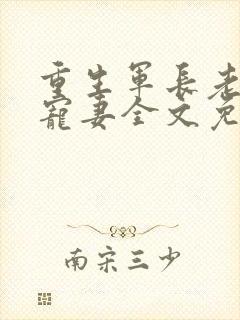 重生军长老
宠妻全文免
南宋三少